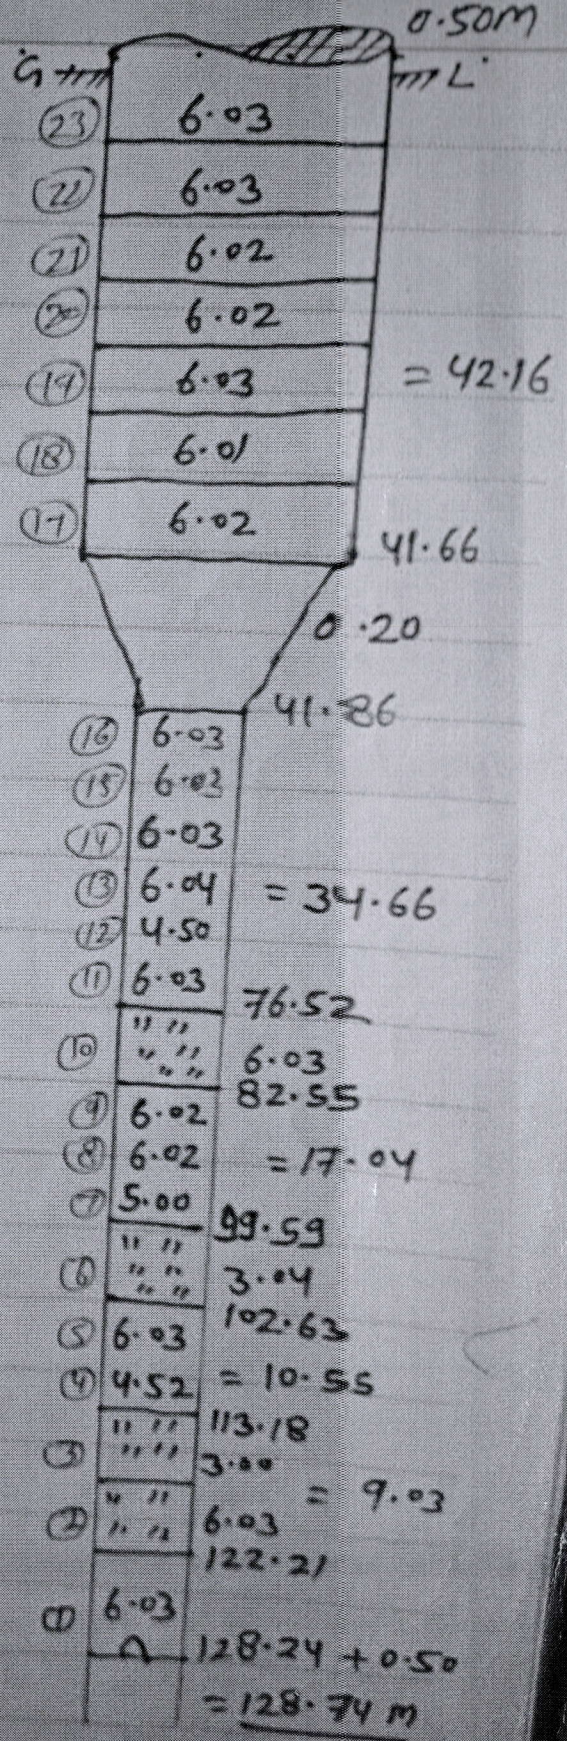 0.50m
G L
23 6.03
22 6.03
21 6.02
20 6.02
19 6.03 = 42.16
18 6.01
17 6.02
41.66
0.20
41.86
16 6.03
15 6.03
14 6.03
13 6.04 = 34.66
12 4.50
11 6.03
76.52
" "
10 " " 6.03
" "
82.55
9 6.02
8 6.02 = 17.04
7 5.00
99.59
" "
6 " " 3.04
" "
102.63
5 6.03
4 4.52 = 10.55
" " 113.18
3 " " 3.00
= 9.03
" "
2 " " 6.03
122.21
1 6.03
128.24 + 0.50
= 128.74 m